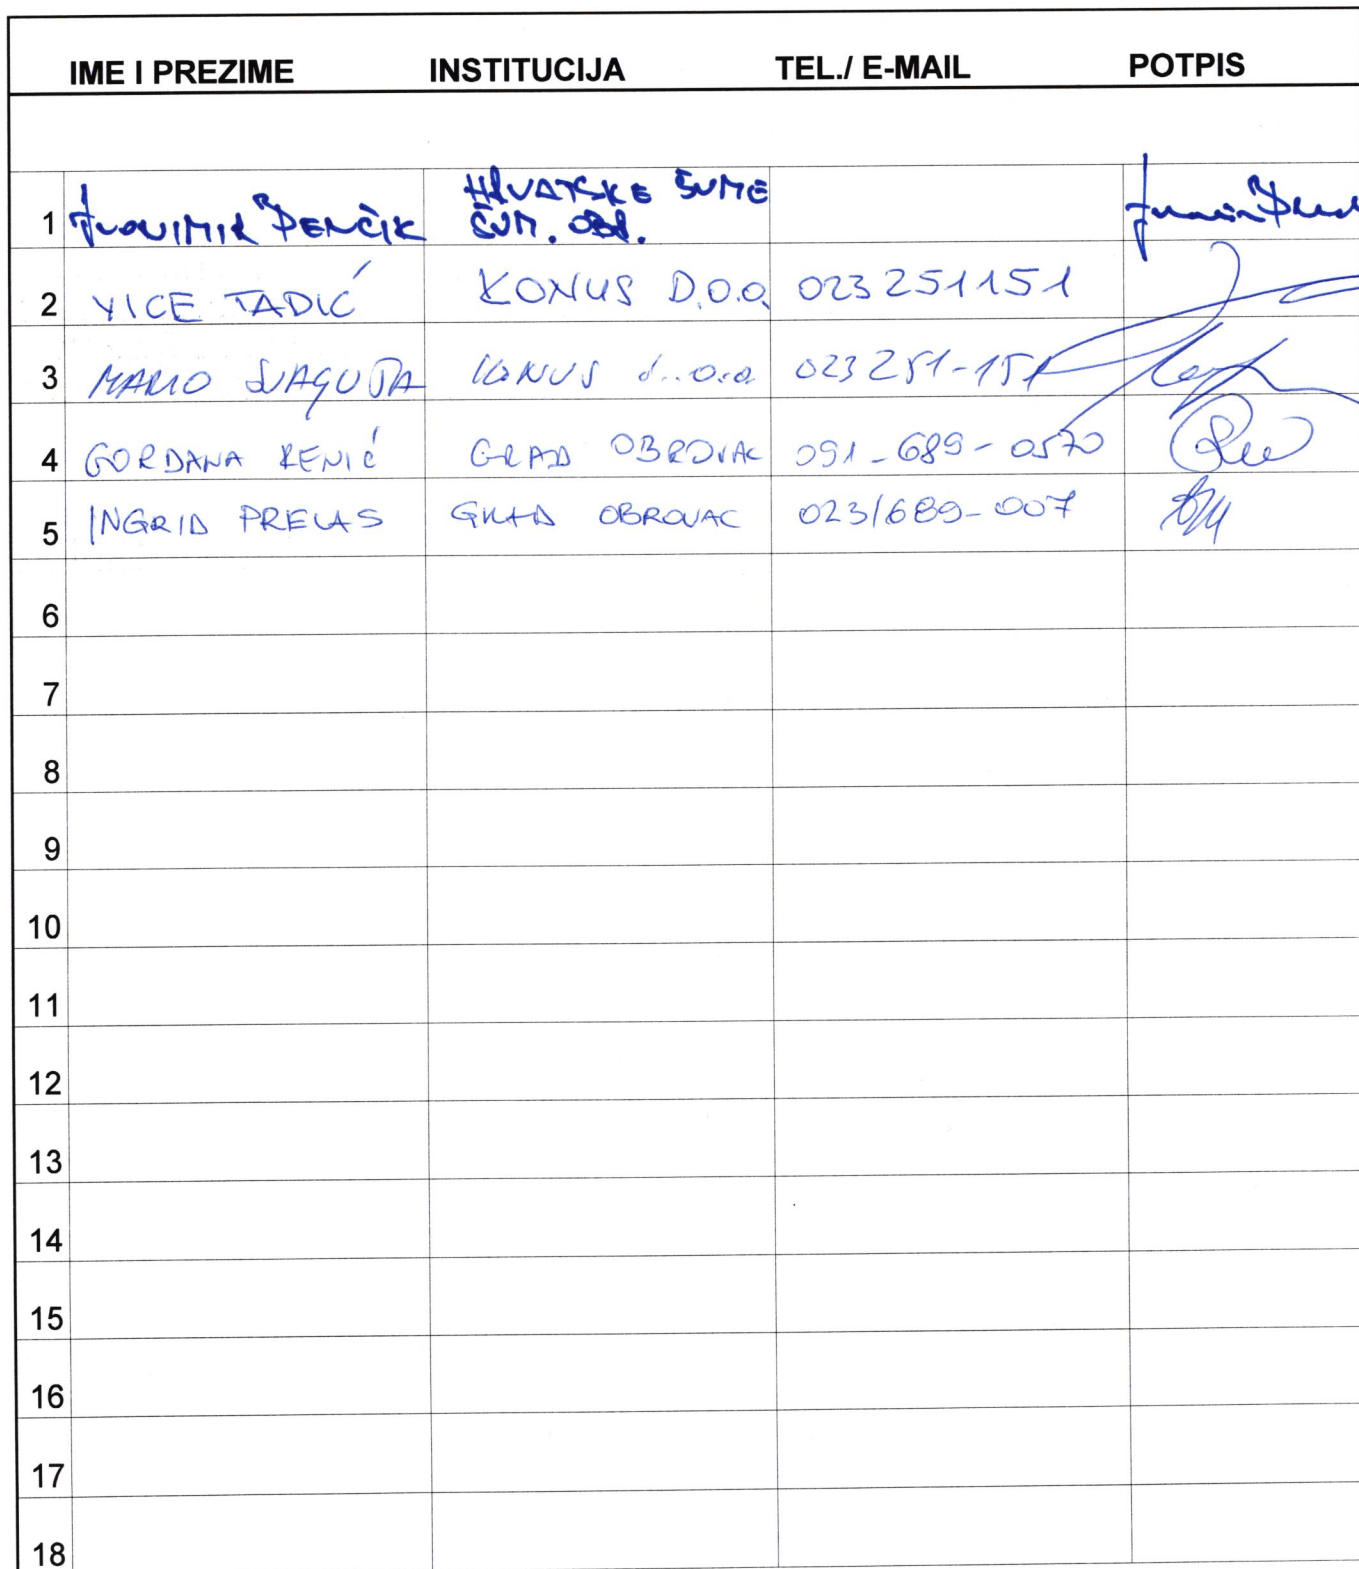 IME I PREZIME INSTITUCIJA TEL./ E-MAIL POTPIS
1 PENČIK HRVATSKE ŠUME
ŠUM. OBR.
2 VICE TADIĆ KONUS D.O.O. 023251151
3 MARIO KONUS d.o.o. 023251-151
4 GORDANA RENIĆ GRAD OBROVAC 091-689-0570
5 INGRID PRELAS GRAD OBROVAC 023/689-007
6
7
8
9
10
11
12
13
14
15
16
17
18